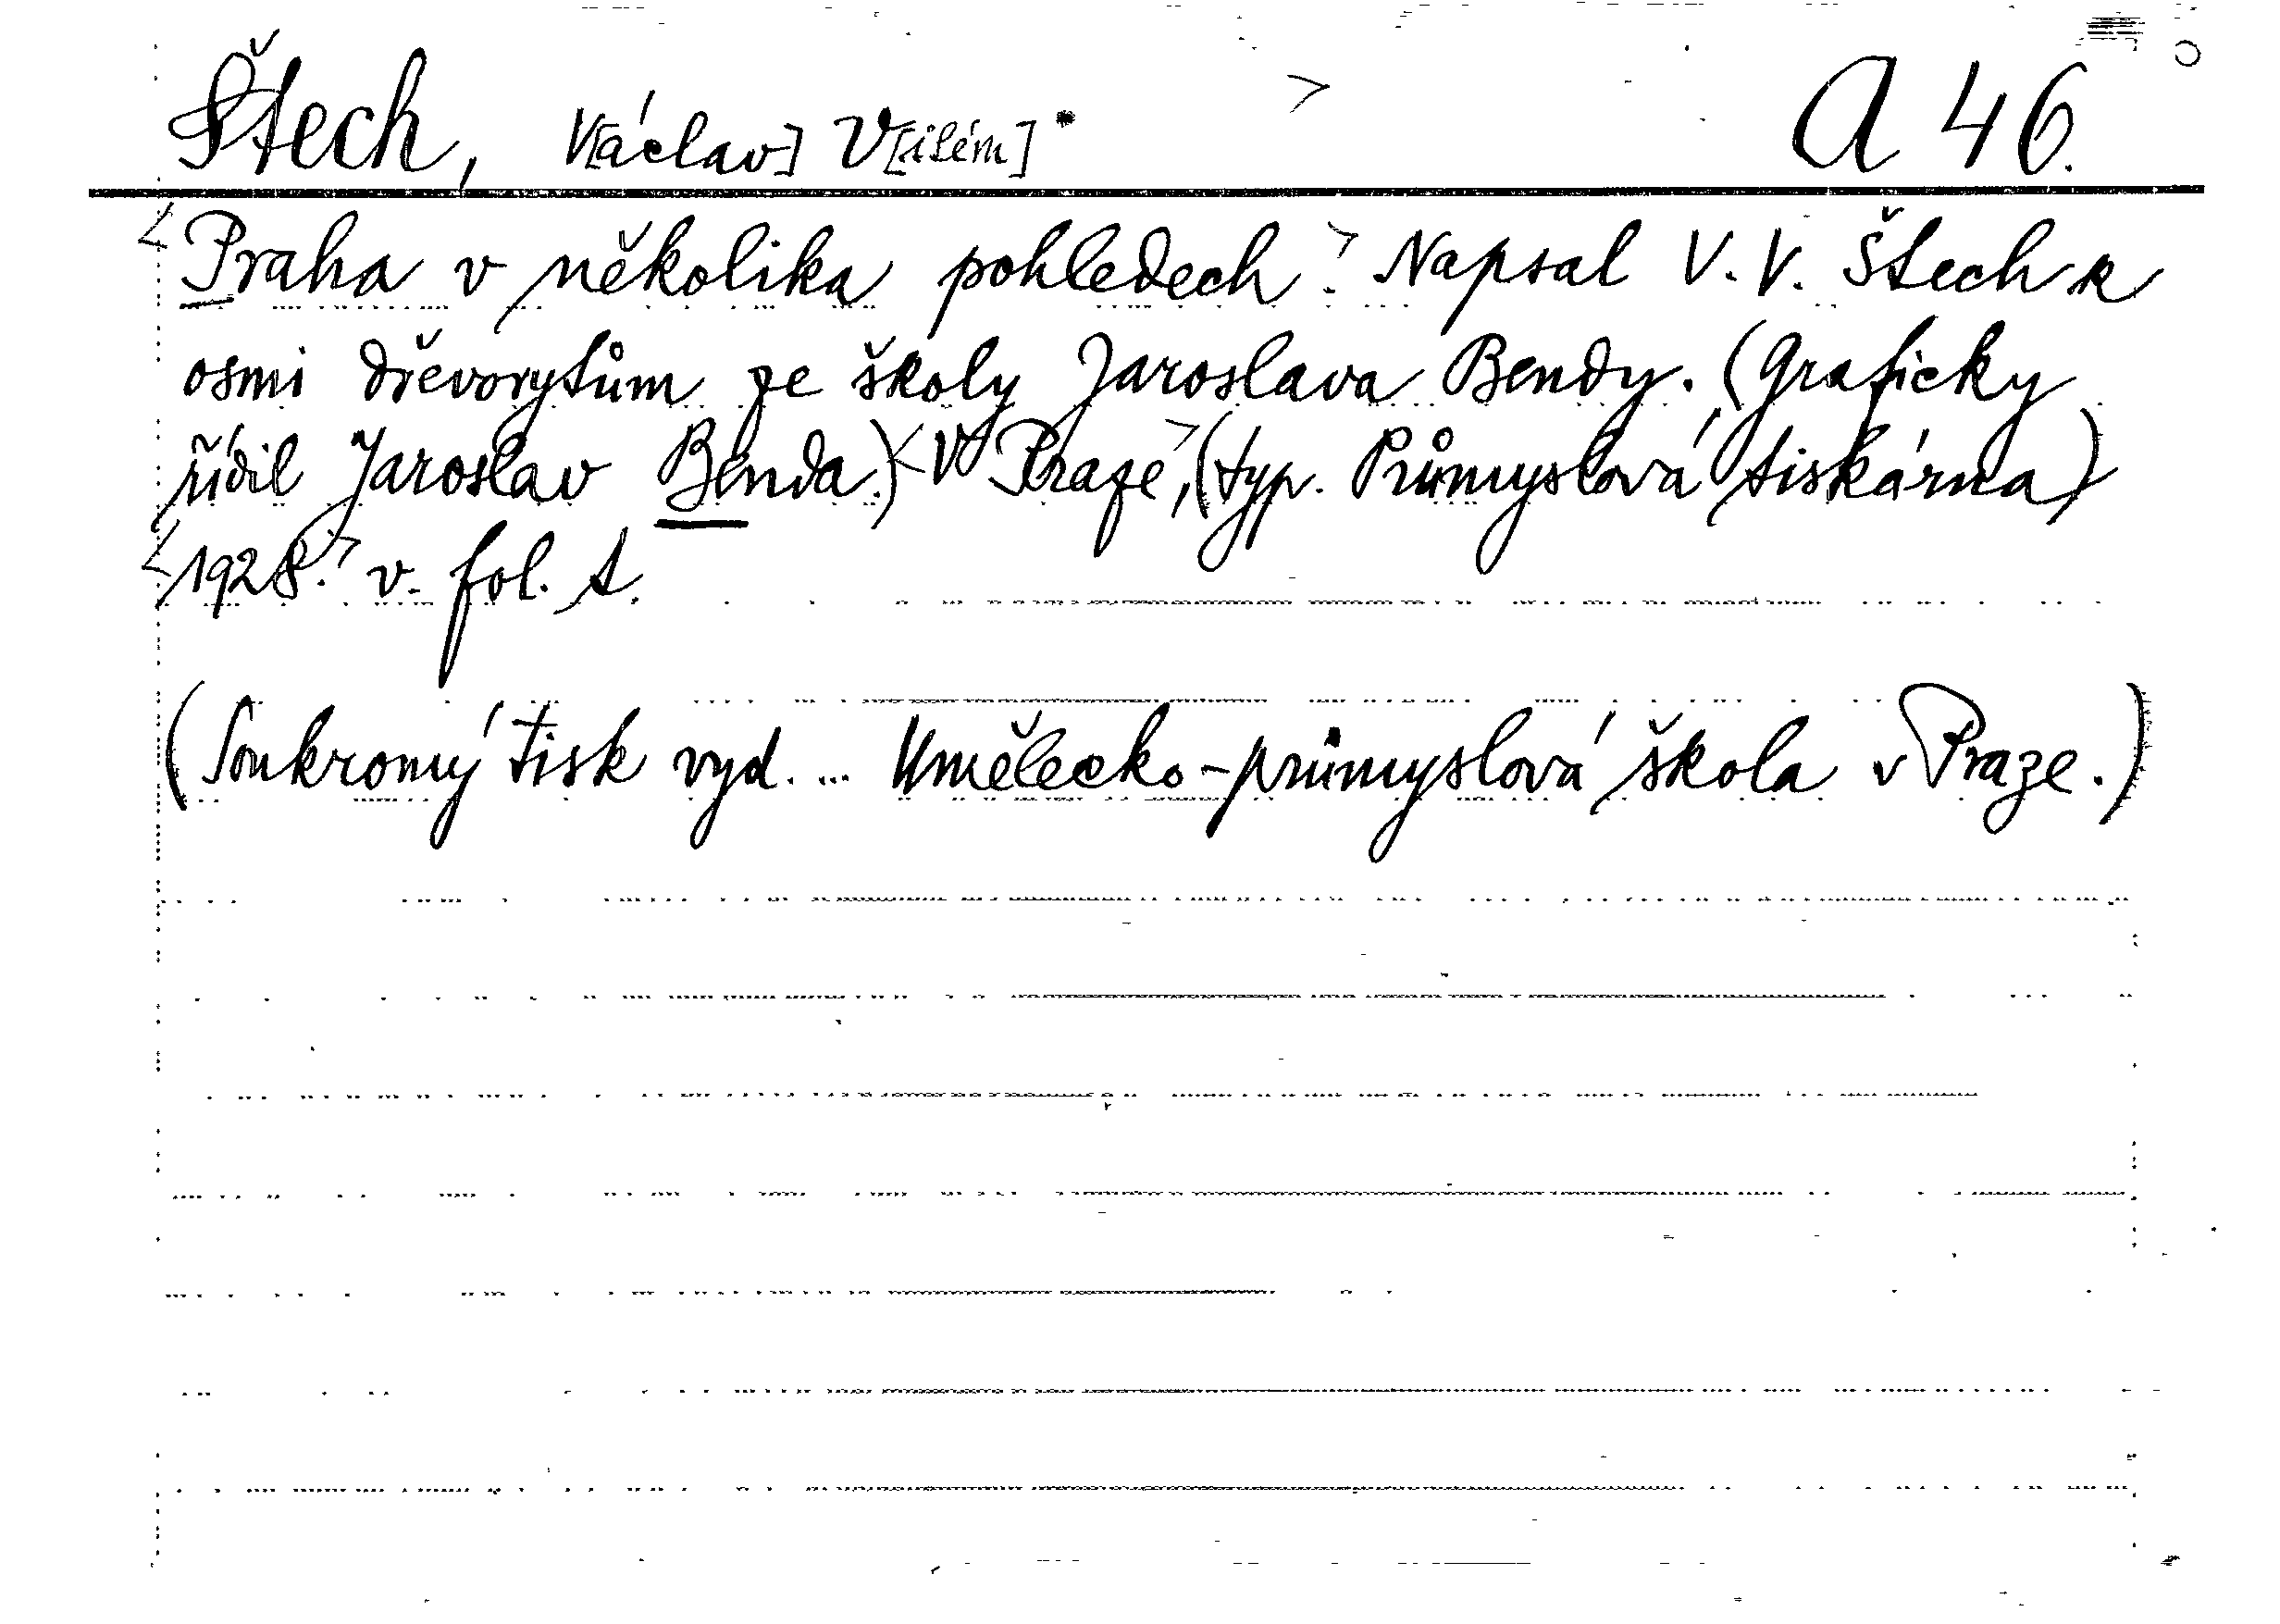 Štech, V[áclav] V[ilém]. A 46.
Praha v několika pohledech. Napsal V. V. Štech k
osmi dřevorytům ze školy Jaroslava Bendy. (Graficky
řídil Jaroslav Benda.) V Praze, (typ. Průmyslová tiskárna)
1928. v. fol. t.
(Soukromý tisk vyd. ... Umělecko-průmyslová škola v Praze.)